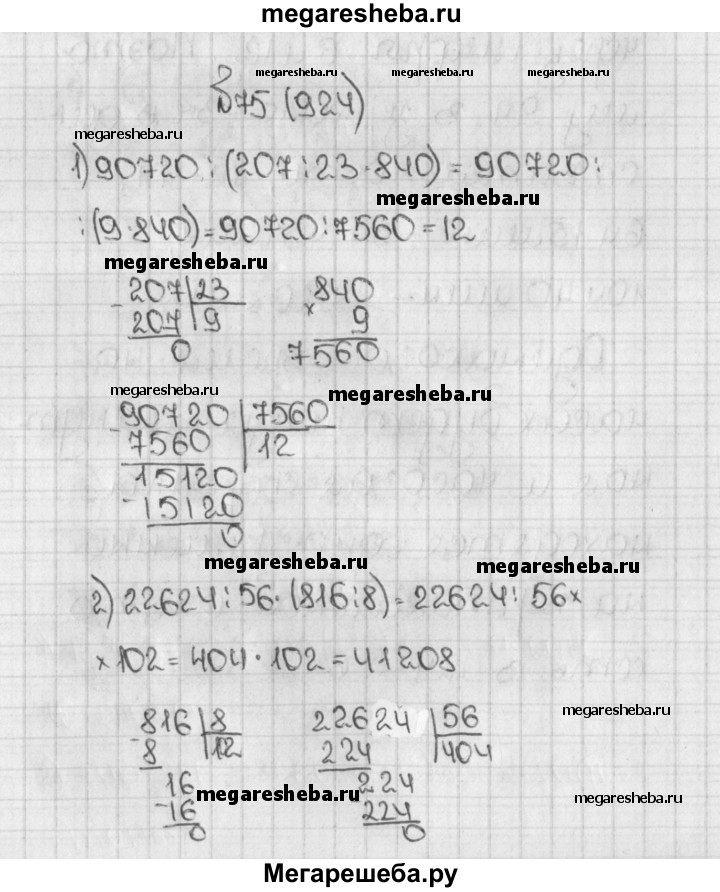 megaresheba.ru
№75 (924)
megaresheba.ru megaresheba.ru megaresheba.ru
megaresheba.ru
1) 90720 : (207 : 23 · 840) = 90720 :
megaresheba.ru
: (9 · 840) = 90720 : 7560 = 12
megaresheba.ru
- 207 | 23
207 | 9
0
840
× 9
7560
megaresheba.ru megaresheba.ru
- 90720 | 7560
7560 | 12
15120
- 15120
0
megaresheba.ru megaresheba.ru
2) 22624 : 56 · (816 : 8) = 22624 : 56 ×
× 102 = 404 · 102 = 41208
- 816 | 8
8 | 12
16
- 16
0
22624 | 56
224 | 404
224
224
0
megaresheba.ru
megaresheba.ru
megaresheba.ru
Мегарешеба.ру